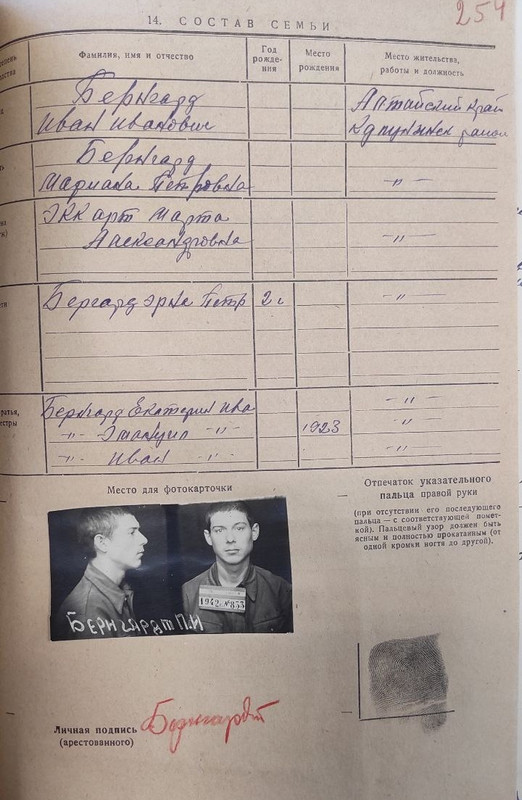 254
14. СОСТАВ СЕМЬИ
Фамилия, имя и отчество
Год рожде-
ния
Место
рождения
Место жительства,
работы и должность
Бернгард
Иван Иванович
Алтайский край
район
Бернгард
Мариана Петровна
-"-
Эккарт Марта
Александровна
-"-
Бергард Эрна Петр
2 г
-"-
Бернгард Екатерин Ива
-"-
-"- Эмануил -"-
1923
-"-
-"- Иван -"-
-"-
Место для фотокарточки
Отпечаток указательного
пальца правой руки
(при отсутствии его последующего
пальца — с соответствующей помет-
кой). Пальцевый узор должен быть
ясным и полностью прокатанным (от
одной кромки ногтя до другого).
1942 г. № 853
Бернгардт П.И
Личная подпись
(арестованного)
Бернгардт